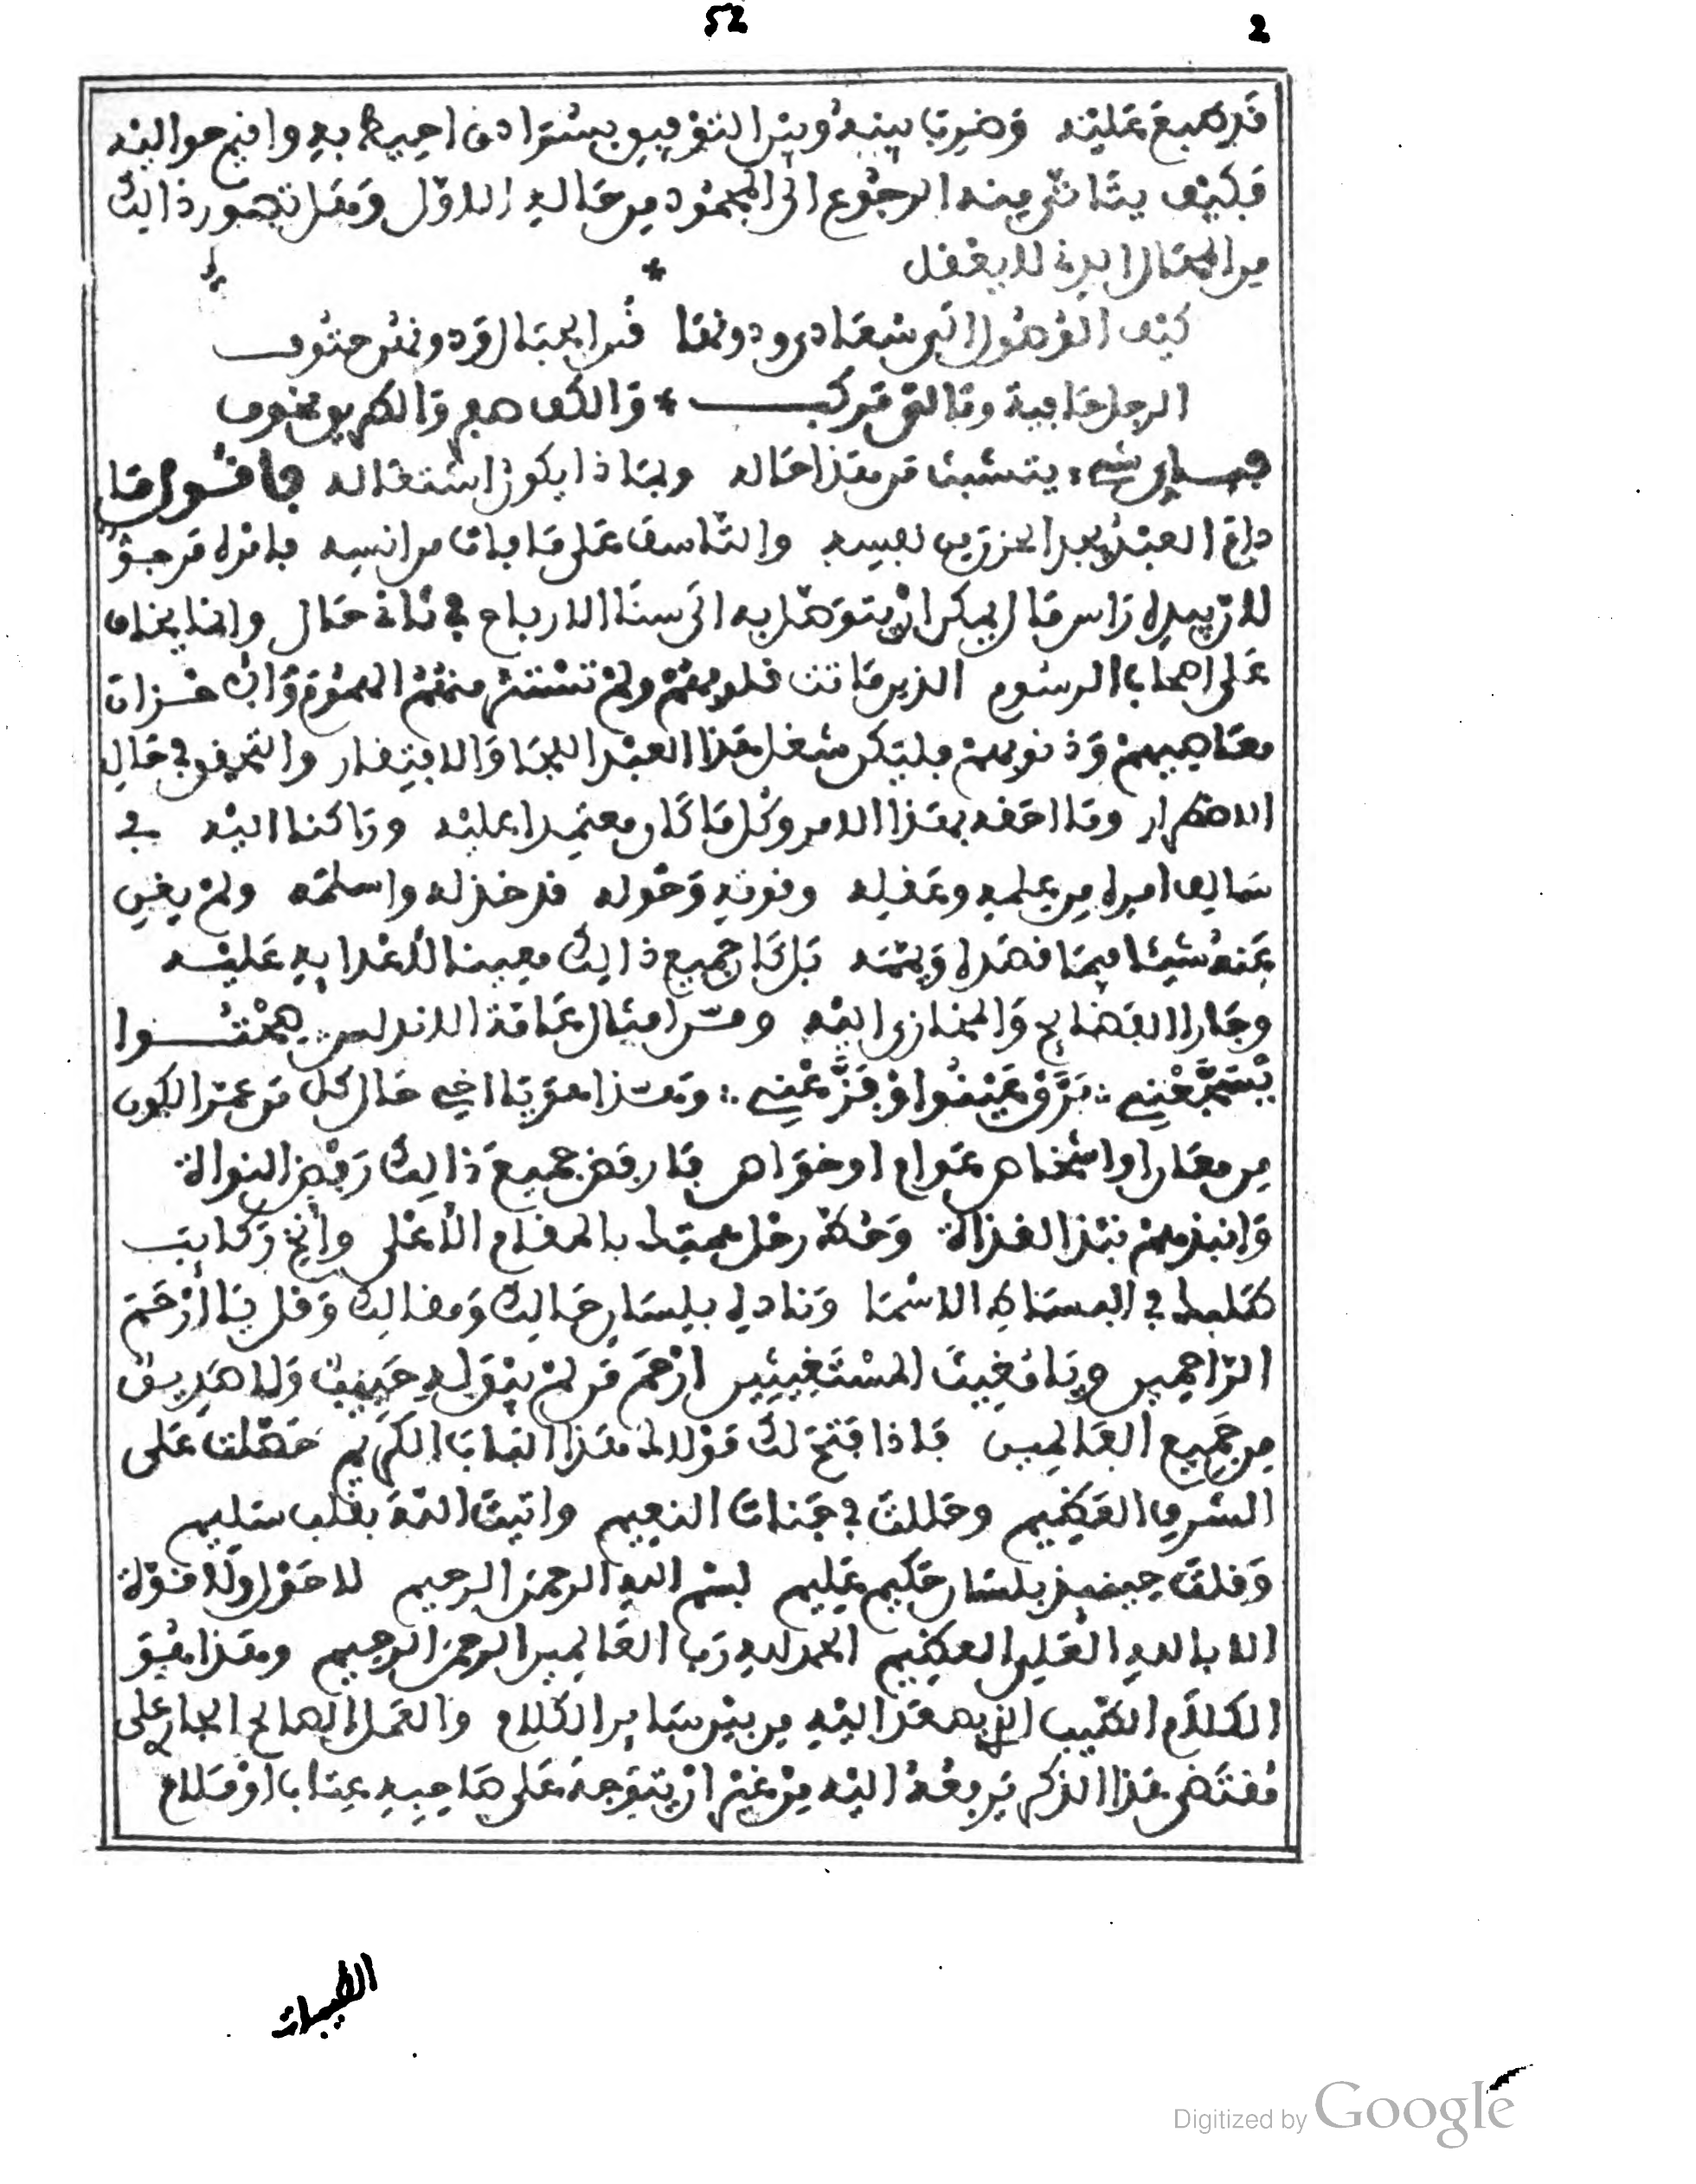 52 2
قد طبع عليه وضرب بينه وبين التوفيق بسترادق احيط به وافيم حواليه
فكيف يتاتى منه الرجوع الى المحمود من حاله الاول وهل تصور ذالك
من المحال الذي لا يعقل
كيف الوصول الى سعاد ودونها قلل الجبال ودونهن حتوف
الرجل حافية وما لي مركب والكف صفر والطريق مخوف
فباي شيء يتشبث من هذا حاله وبماذا يكون اشتغاله فاقول ما
دام العبد يجد الحزن من نفسه والتاسف على ما فات من انسه فانه مرجو
لان بيده راس مال يمكن ان يتوصل به الى سنا الارباح في ثاني حال وانما يخاف
على اصحاب الرسوم الذين ماتت قلوبهم ولم تستنر منهم الهموم والى خزان
معاصيهم وذنوبهم فليكن شغل هذا العبد اللجا والافتقار والتحقق بحال
الاضطرار وما احقه بهذا الامر وكل ما كان معتمدا عليه وراكنا اليه في
سالف امره من علمه وعقله وقوته وحوله قد خذله واسلمه ولم يغن
عنه شيئا فيما قصده ويممه بل كان جميع ذالك معينا للاعداء به عليه
وجار االفضايح والمخازي اليه ومن امثال عامة الاندلس
وهذا هو يا اخي حال كل من عبد الكون
من معان او اشخاص عوام او خواص فارفض جميع ذالك رفض النواة
وانبذهم نبذ القذاة وحط رحل همتك بالمقام الاعلى وانخ ركايب
طلبك في البساط الاسما وناده بلسان حالك ومقالك وقل يا ارحم
الراحمين ويا مغيث المستغيثين ارحم من لم يبق له حبيب ولا صديق
من جميع العالمين فاذا فتح لك مولاك هذا الباب الكريم حصلت على
الشرف العظيم وحللت في جنات النعيم واتيت الله بقلب سليم
وقلت حينئذ بلسان حكيم عليم بسم الله الرحمن الرحيم لا حول ولا قوة
الا بالله العلي العظيم الحمد لله رب العالمين الرحمن الرحيم وهذا هو
الكلام الطيب الذي صعد اليه من بين ساير الكلام والعمل الصالح الجار على
مقتضى هذا الذكر يرفعه اليه من غير ان يتوجه على صاحبه عتاب او ملام
الطيبات
Digitized by Google